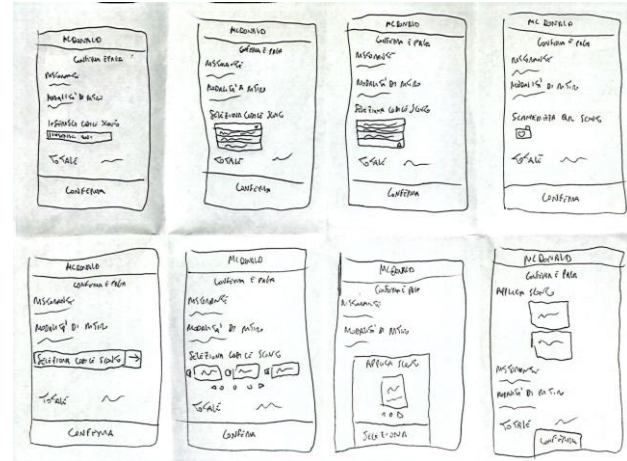 McDONALD
CONFERMA E PAGA
RISTORANTE
MODALITÀ DI RITIRO
INSERISCI CODICE SCONTO
TOTALE
CONFERMA
McDONALD
CONFERMA E PAGA
RISTORANTE
MODALITÀ DI RITIRO
SELEZIONA CODICE SCONTO
TOTALE
CONFERMA
McDONALD
CONFERMA E PAGA
RISTORANTE
MODALITÀ DI RITIRO
SELEZIONA CODICE SCONTO
TOTALE
CONFERMA
Mc DONALD
CONFERMA E PAGA
RISTORANTE
MODALITÀ DI RITIRO
SCANNERIZZA QR SCONTO
TOTALE
CONFERMA
McDONALD
CONFERMA E PAGA
RISTORANTE
MODALITÀ DI RITIRO
SELEZIONA CODICE SCONTO
TOTALE
CONFERMA
McDONALD
CONFERMA E PAGA
RISTORANTE
MODALITÀ DI RITIRO
SELEZIONA CODICE SCONTO
TOTALE
CONFERMA
McDONALD
CONFERMA E PAGA
RISTORANTE
MODALITÀ DI RITIRO
APPLICA SCONTO
SELEZIONA
McDONALD
CONFERMA E PAGA
APPLICA SCONTO
RISTORANTE
MODALITÀ DI RITIRO
TOTALE
CONFERMA